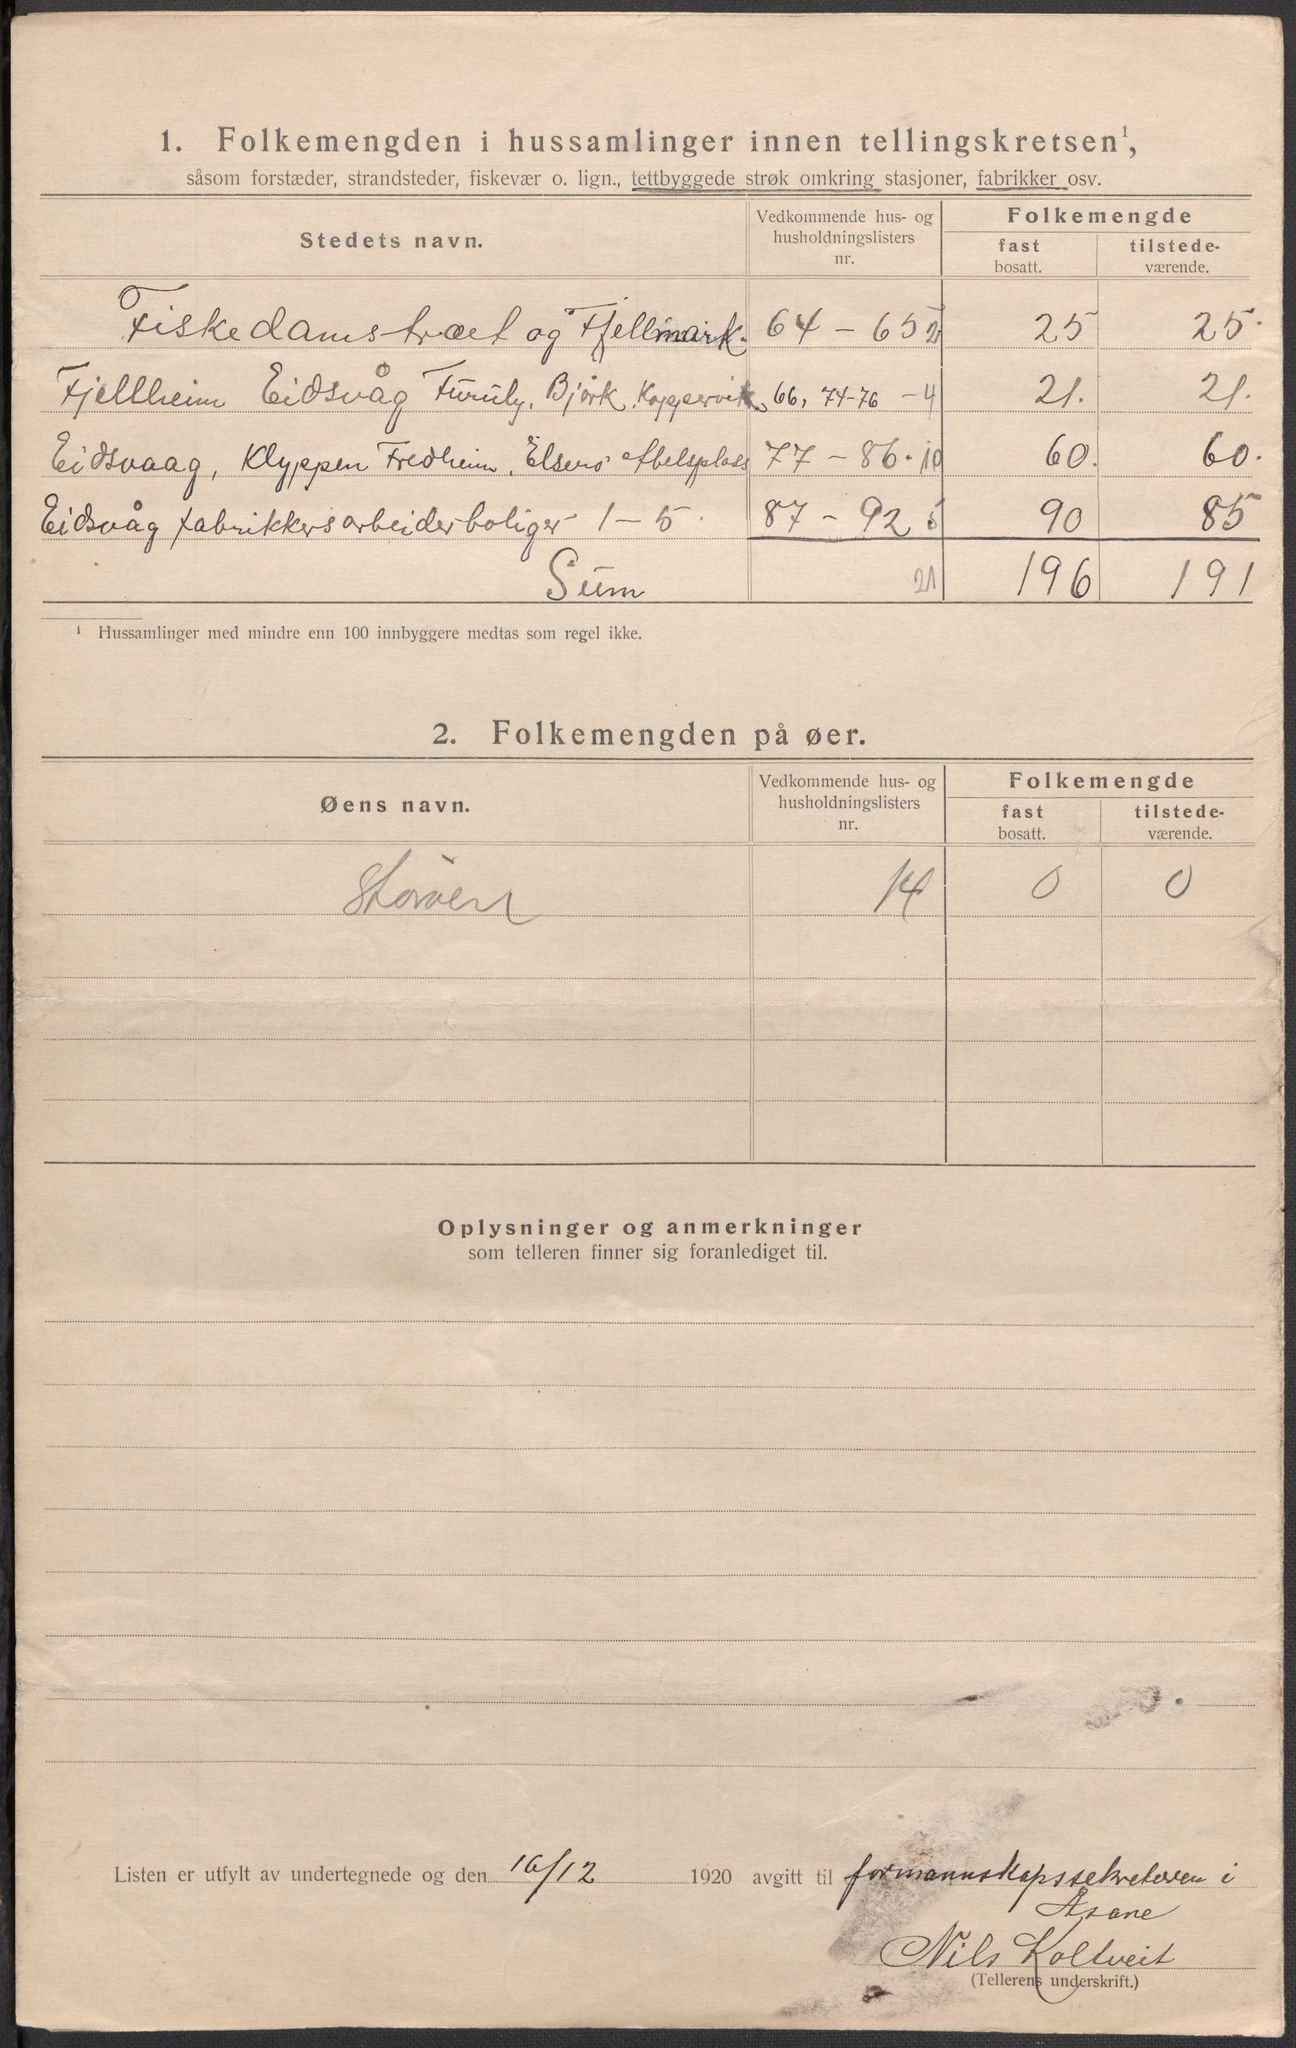 1. Folkemengden i hussamlinger innen tellingskretsen¹,
såsom forstæder, strandsteder, fiskevær o. lign., tettbyggede strøk omkring stasjoner, fabrikker osv.
Stedets navn. Vedkommende hus- og husholdningslisters nr. Folkemengde fast bosatt. tilstede-værende.
Fiskedamstræet og Fjellmark. 64 – 65 2 25 25.
Fjellheim Eidsvåg Furuly, Bjørk, Koppervik 66, 74-76 – 4 21. 21.
Eidsvaag, Klyppen Fredheim, Elsero Abelsplass 77 – 86. 10 60. 60.
Eidsvåg fabrikkers arbeiderboliger 1 – 5. 87 – 92 5 90 85
Sum 21 196 191
¹ Hussamlinger med mindre enn 100 innbyggere medtas som regel ikke.
2. Folkemengden på øer.
Øens navn. Vedkommende hus- og husholdningslisters nr. Folkemengde fast bosatt. tilstede-værende.
Storøen 14 0 0
Oplysninger og anmerkninger
som telleren finner sig foranlediget til.
Listen er utfylt av undertegnede og den 16/12 1920 avgitt til formannskapssekretæren i
Åsane
Nils Koltveit
(Tellerens underskrift.)